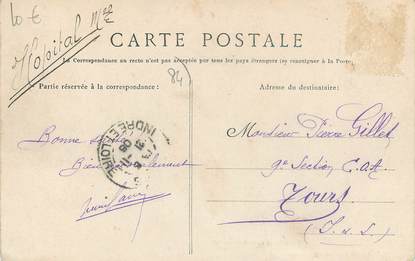 10 €
Hopital Mre
CARTE POSTALE
La Correspondance au recto n'est pas acceptée par tous les pays étrangers (se renseigner à la Poste)
94
Partie réservée à la correspondance :
Adresse du destinataire:
Bonne
Bien
INDRE-ET-LOIRE
Monsieur Pierre Gillet
9e Section C.O.A
Tours
(I. et L.)